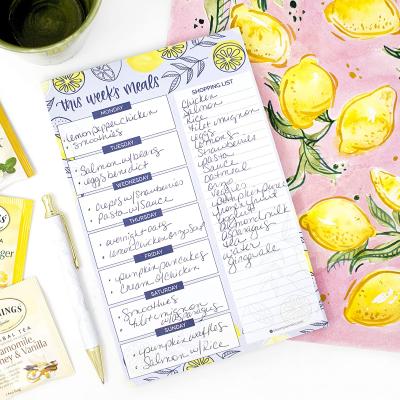 this week's meals
MONDAY
• Lemon pepper chicken
• Smoothies
TUESDAY
• Salmon w/
• eggs benedict
WEDNESDAY
• crepes w/ strawberries
• Pasta w/ sauce
THURSDAY
• overnight oats
• Lemon chicken orzo soup
FRIDAY
• pumpkin pancakes
• cream of chicken
SATURDAY
• Smoothies
• filet mignon
w/ asparagus
SUNDAY
• pumpkin waffles
• Salmon w/ Rice
SHOPPING LIST
Chicken
Salmon
Rice
filet mignon
eggs
Lemons
Strawberries
pasta
Sauce
oatmeal
orzo
veggies
pumpkin puree
yogurt
almond milk
asparagus
water
NGS
HERBAL TEA
Chamomile,
Honey & Vanilla